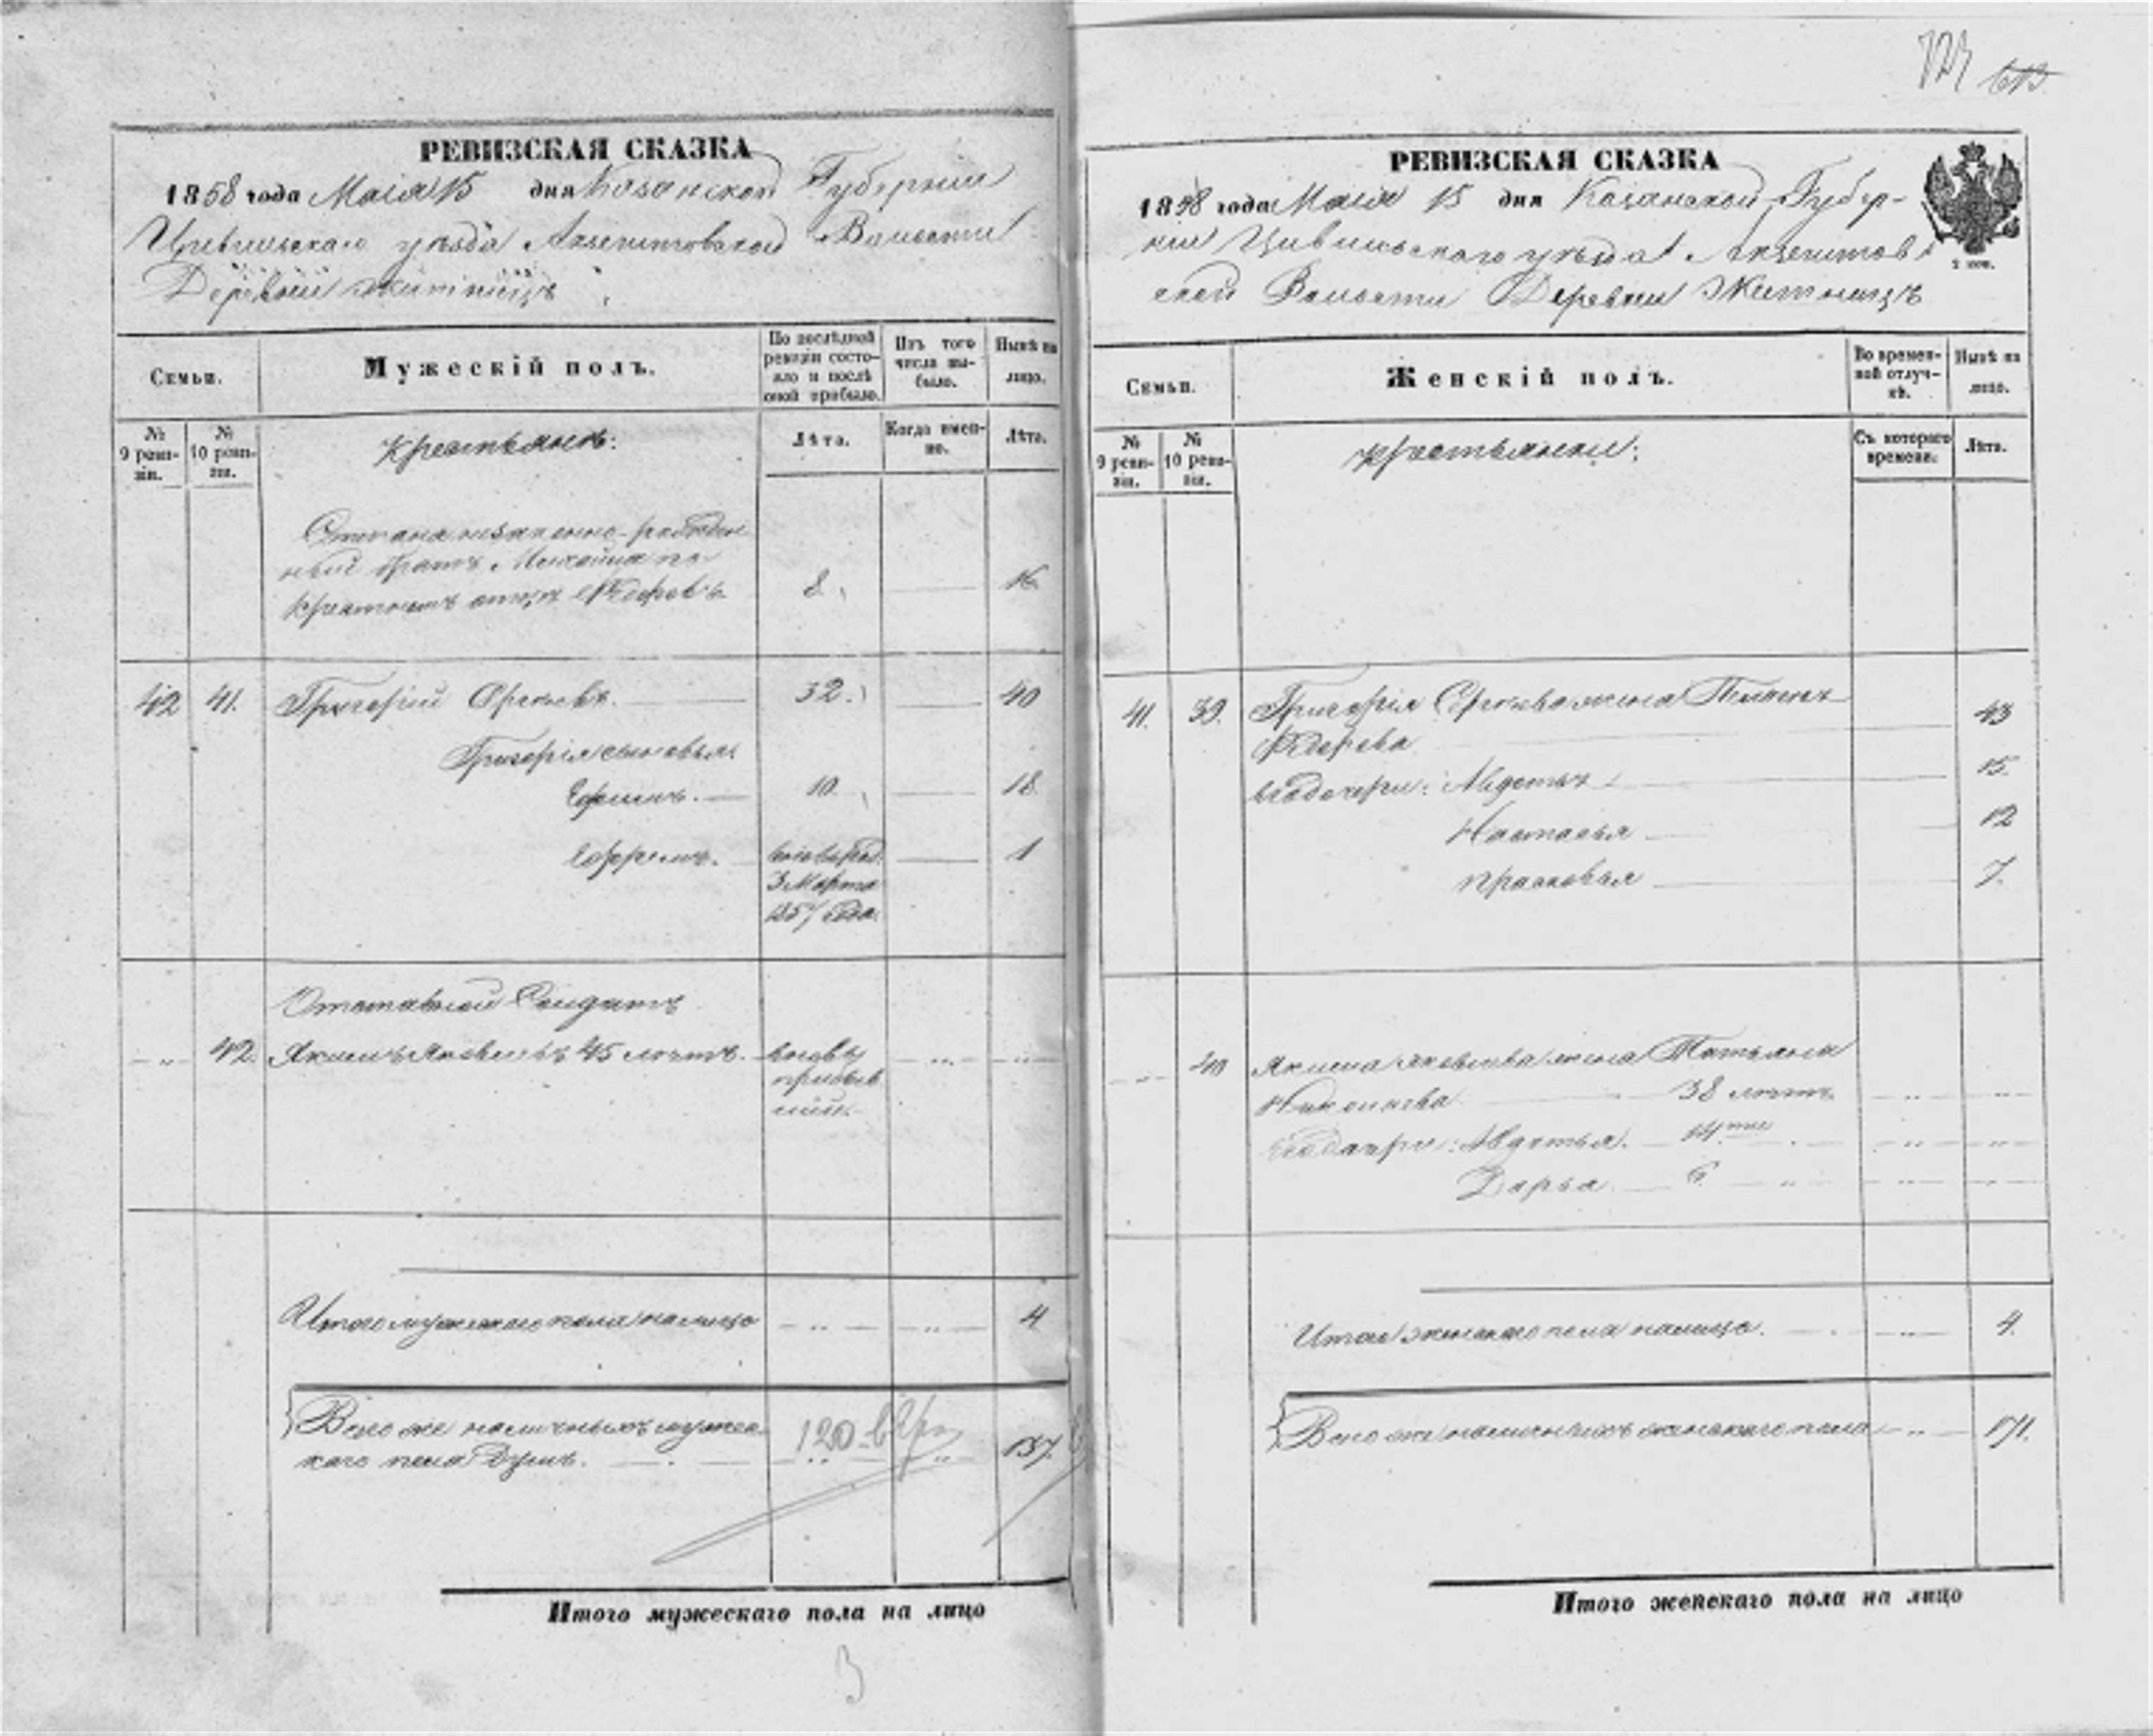 РЕВИЗСКАЯ СКАЗКА
1858 года Маія 15 дня Казанской Губерніи
Цивильскаго уѣзда Акзегитовской Волости
Деревни Житницъ
Семьи.
Мужескій полъ.
По послѣдней ревизіи состояло и послѣ оной прибыло.
Изъ того числа выбыло.
Нынѣ на лицо.
№ 9 ревизіи.
№ 10 ревизіи.
Крестьянъ:
Лѣта.
Когда именно.
Лѣта.
Степана незаконно-рожден
ный братъ Михайла по
крестномъ отцѣ Ѳедоровъ 8. 16.
42 41. Григорій Сергѣевъ. 32. 40
Григорія сыновья:
Ефимъ. 10. 18.
Ефремъ. вновь род. 1
3 Марта
1857 года.
Отставной Солдатъ
42. Якимъ Яковлевъ 45 лѣтъ. вновь
прибыв
шій.
Итого мужескаго пола налицо 4.
Всего же наличныхъ мужес
каго пола душъ. 137.
120
Итого мужескаго пола на лицо
3
РЕВИЗСКАЯ СКАЗКА
1858 года Маія 15 дня Казанской Губер-
ніи Цивильскаго уѣзда Акзегитов
ской Волости Деревни Житницъ
2 коп.
Семьи.
Женскій полъ.
Во временной отлучкѣ.
Нынѣ на лицо.
№ 9 ревизіи.
№ 10 ревизіи.
Крестьянки:
Съ котораго времени.
Лѣта.
41. 39. Григорія Сергѣева жена
Ѳедорова 43
его дочери: Авдотья 15.
Настасья 12
Прасковья 7.
40 Якима Яковлева жена Татьяна
38 лѣтъ.
его дочери: Авдотья. 14
Дарья. 6
Итого женскаго пола налицо. 4.
Всего же наличныхъ женскаго пола 171.
Итого женскаго пола на лицо